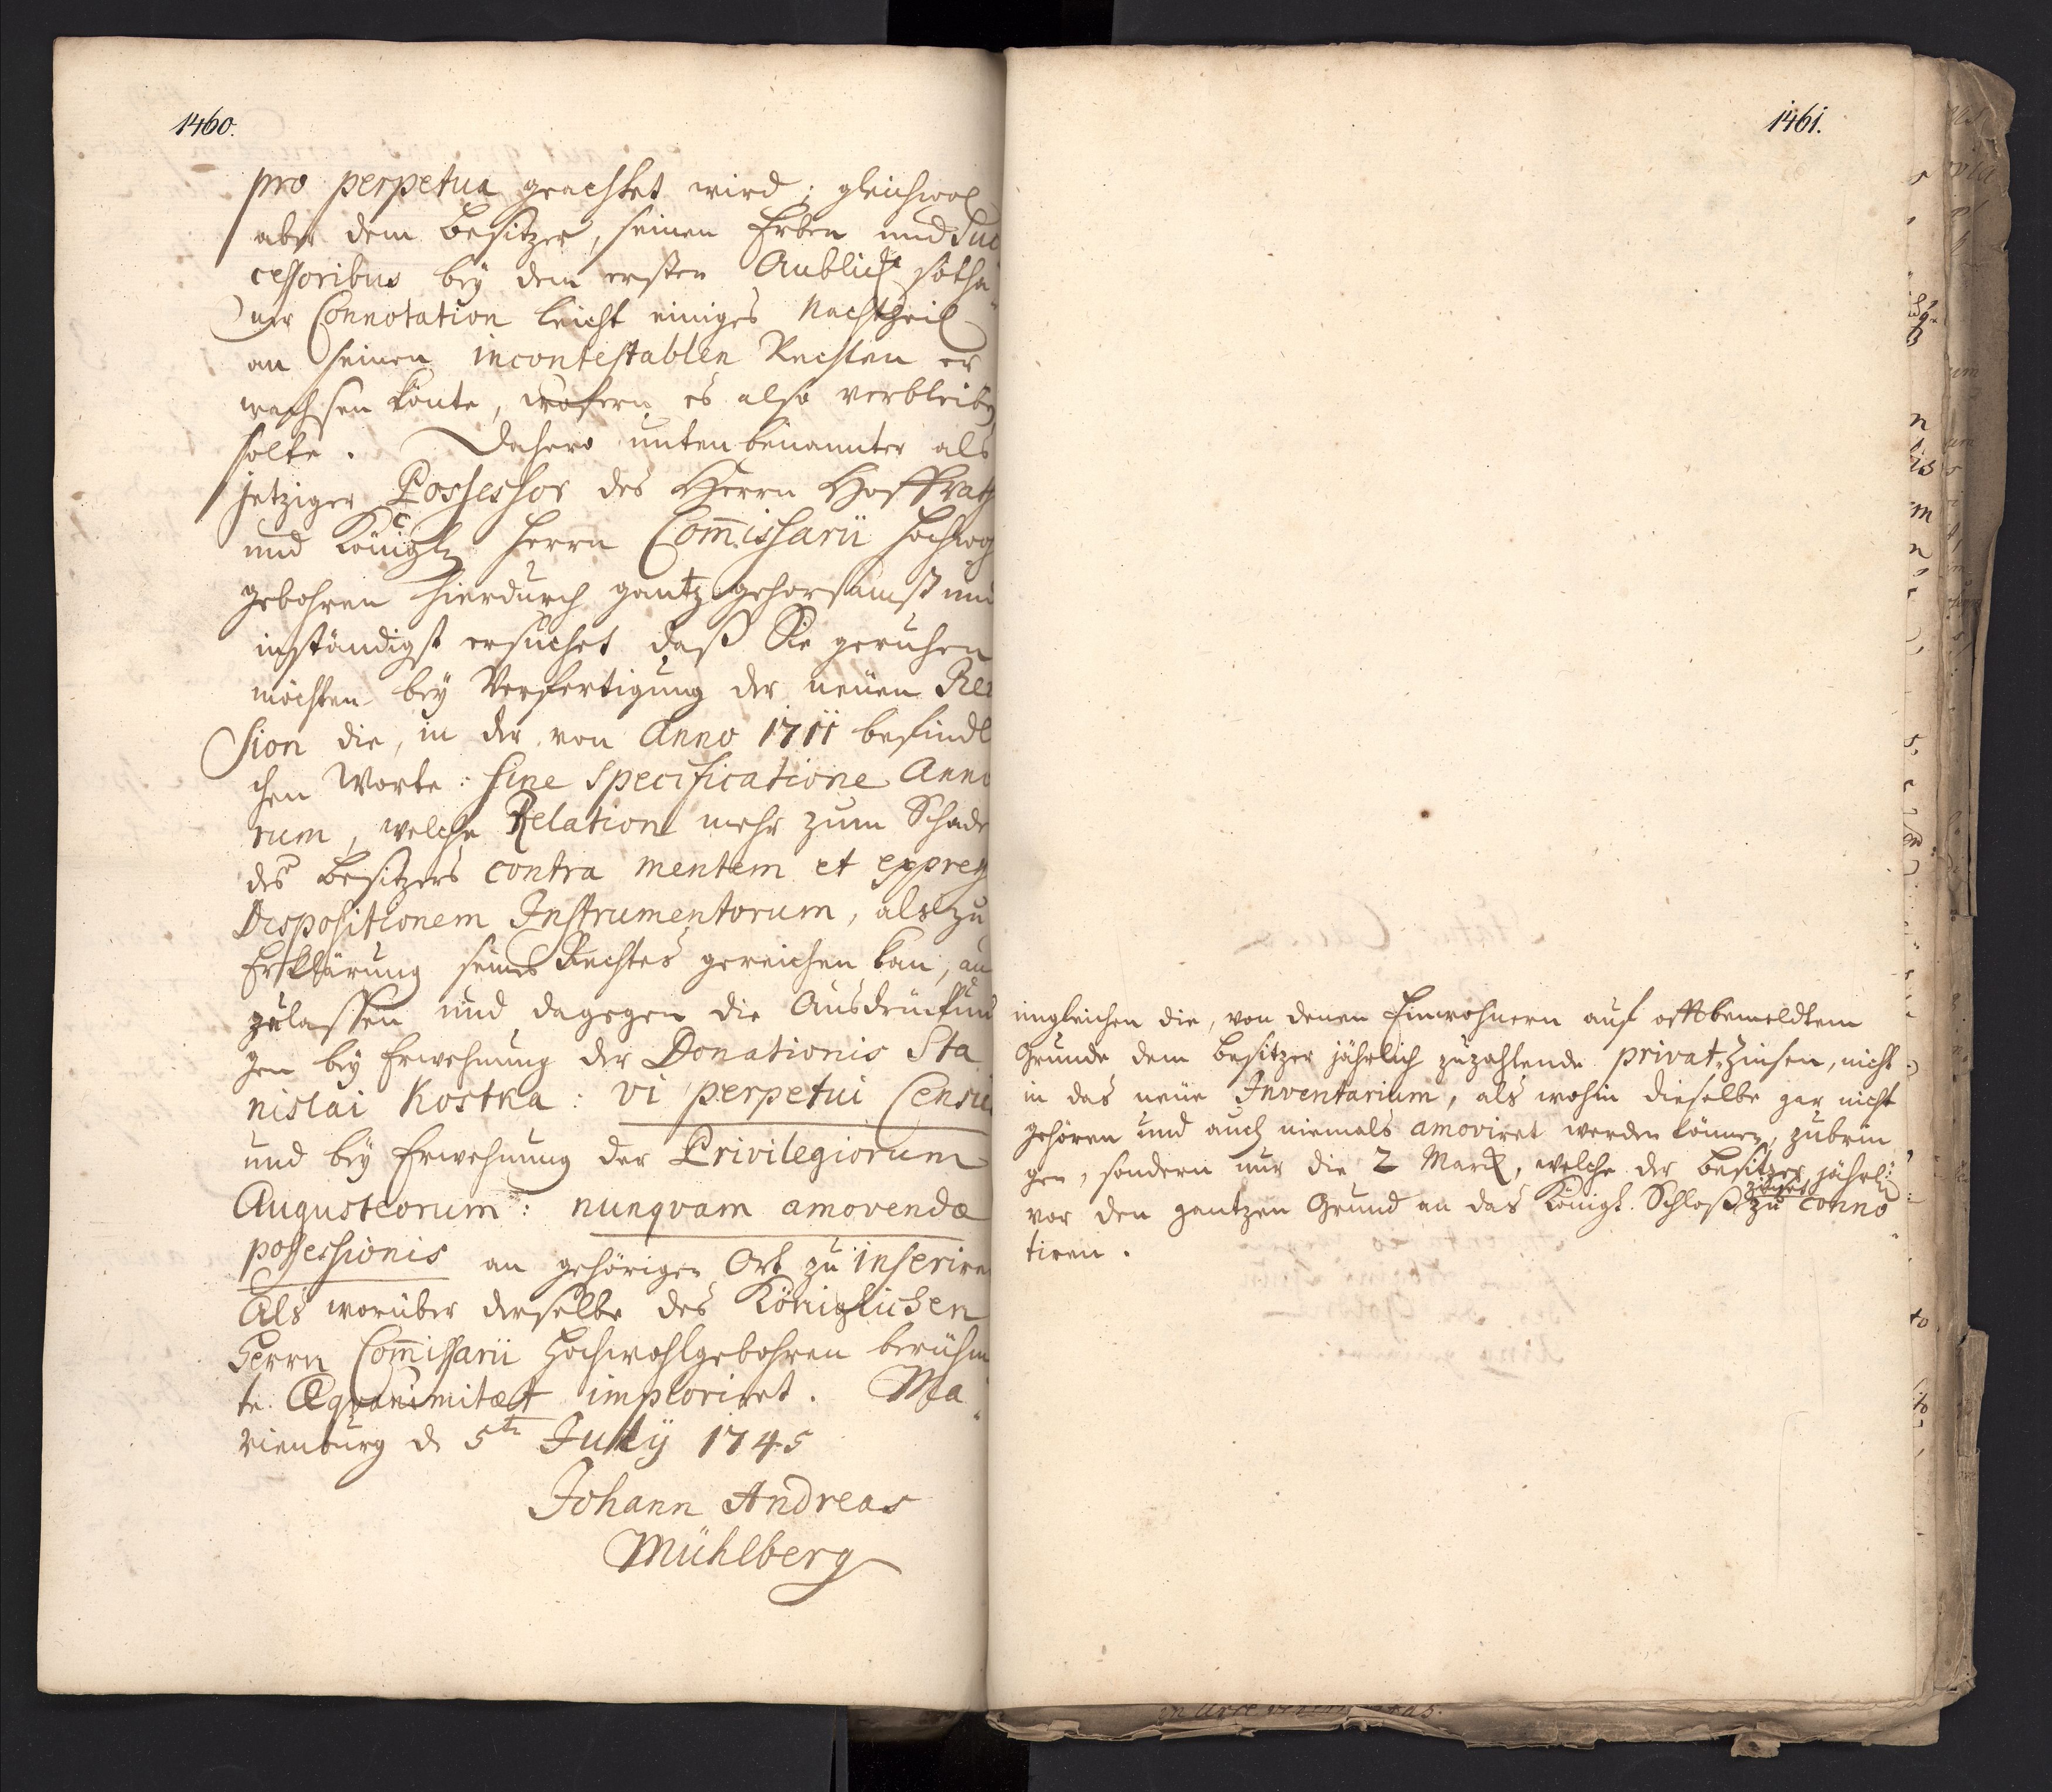 1460.
pro perpetua geachtet wird; gleichwol
aber dem Besitzer, seinen Erben und Suc
cessoribus bey dem ersten Anblick sotha
ner Connotation leicht einiges Nachtheil
an seinen incontestablen Rechten er
wachsen könte, wofern es also verbleiben
solte. Dahero unten benannter als
jetziger Possessor des Herrn Hoffrath
und Königl. Herrn Com̄issarii Hochwohl
gebohren hierdurch gantz gehorsamst und
inständigst ersuchet daß Sie geruhen
möchten bey Verfertigung der neuen Re
sion die, in der von Anno 1711 befindl
chen Worte: sine specificatione Anno
rum, welche Relation mehr zum Schade
des Besitzers contra mentem et express
Dispositionem Instrumentorum, als zu
Erklärung seines Rechtes gereichen kan, au
zulassen und dagegen die Ausdrückun
gen bey Erwehnung der Donationis Sta
nislai Kostka: vi perpetui Censu
und bey Erwehnung der Privilegiorum
Augusteorum: nunqvam amovendæ
possessionis an gehörigen Ort zu inserire
Als worüber derselbe des Königlichen
Herrn Com̄issarii Hochwohlgebohren berühm
te Æqvanimitæt imploriret. Ma
rienburg d. 5ten July 1745
Johann Andreas
Mühlberg
1461.
imgleichen die, von denen Einwohnern auf offtbemeldtem
Grunde dem Besitzer jährlich zuzahlende privat-Zinsen, nicht
in das neue Inventarium, als wohin dieselbe gar nicht
gehören und auch niemals amoviret werden können, zubrin
gen, sondern nur die 2 Marck, welche der Besitzer jährl:
vor den gantzen Grund an das Königl. Schloß zinset zu conno
tiren.